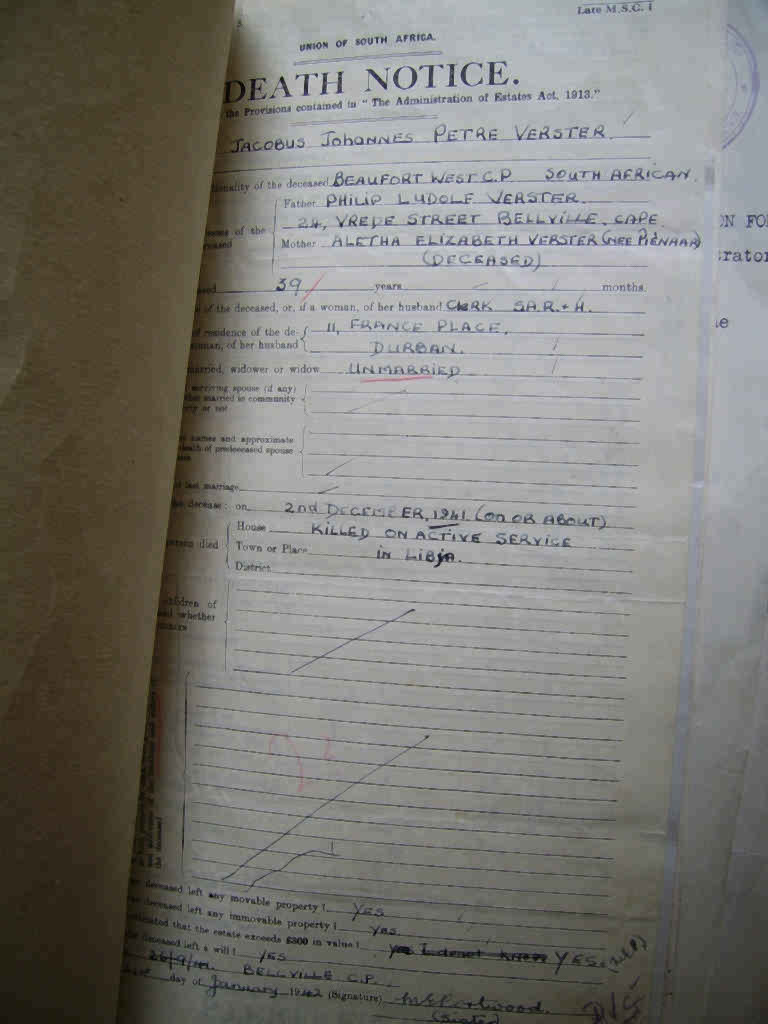 Late M.S.C. 1
UNION OF SOUTH AFRICA.
DEATH NOTICE.
the Provisions contained in "The Administration of Estates Act, 1913."
JACOBUS JOHANNES PETRE VERSTER
of the deceased BEAUFORT WEST C.P. SOUTH AFRICAN.
Father PHILIP LUDOLF VERSTER.
24, VREDE STREET BELLVILLE, CAPE.
of the
Mother ALETHA ELIZABETH VERSTER (NEE PIENAAR)
(DECEASED)
39 years months.
of the deceased, or, if a woman, of her husband CLERK S.A.R. & H.
of residence of the de- 11, FRANCE PLACE,
of her husband DURBAN.
widower or widow UNMARRIED
surviving spouse (if any)
married in community
or not
names and approximate
of predeceased spouse
last marriage
on 2nd DECEMBER, 1941 (ON OR ABOUT)
House KILLED ON ACTIVE SERVICE
person died
Town or Place IN LIBYA.
District
children of
whether
deceased left any movable property? YES
deceased left any immovable property? YES
that the estate exceeds £300 in value? I do not know YES.
deceased left a will? YES
26/9/ BELLVILLE C.P.
day of January 1942 (Signature)
(Sister)
ON FO
rator